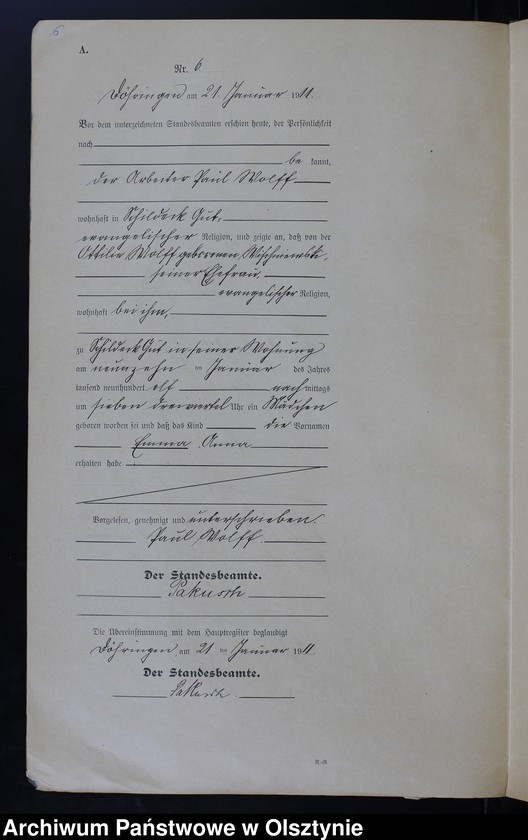 6
A.
Nr. 6
Döhringen am 21. Januar 1911.
Vor dem unterzeichneten Standesbeamten erschien heute, der Persönlichkeit
nach
be kannt,
der Arbeiter Paul Wolff
wohnhaft in Schildeck Gut,
evangelischer Religion, und zeigte an, daß von der
Ottilie Wolff geborenen Wischniewski,
seiner Ehefrau,
evangelischer Religion,
wohnhaft bei ihm,
zu Schildeck Gut in seiner Wohnung
am neunzehn ten Januar des Jahres
tausend neunhundert elf nach mittags
um sieben dreiviertel Uhr ein Mädchen
geboren worden sei und daß das Kind die Vornamen
Emma Anna
erhalten habe
Vorgelesen, genehmigt und unterschrieben.
Paul Wolff
Der Standesbeamte.
Pakusch
Die Übereinstimmung mit dem Hauptregister beglaubigt
Döhringen, am 21 ten Januar 1911
Der Standesbeamte.
Pakusch
Archiwum Państwowe w Olsztynie